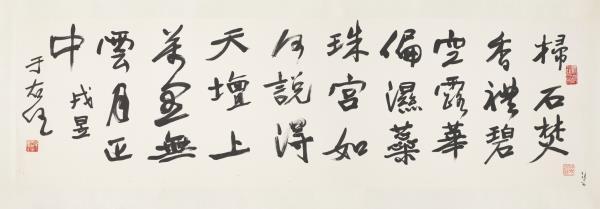 掃石焚
香禮碧
空露華
偏濕蘂
珠宮如
何說得
天壇上
萬里無
雲月正
中 戎昱
于右任